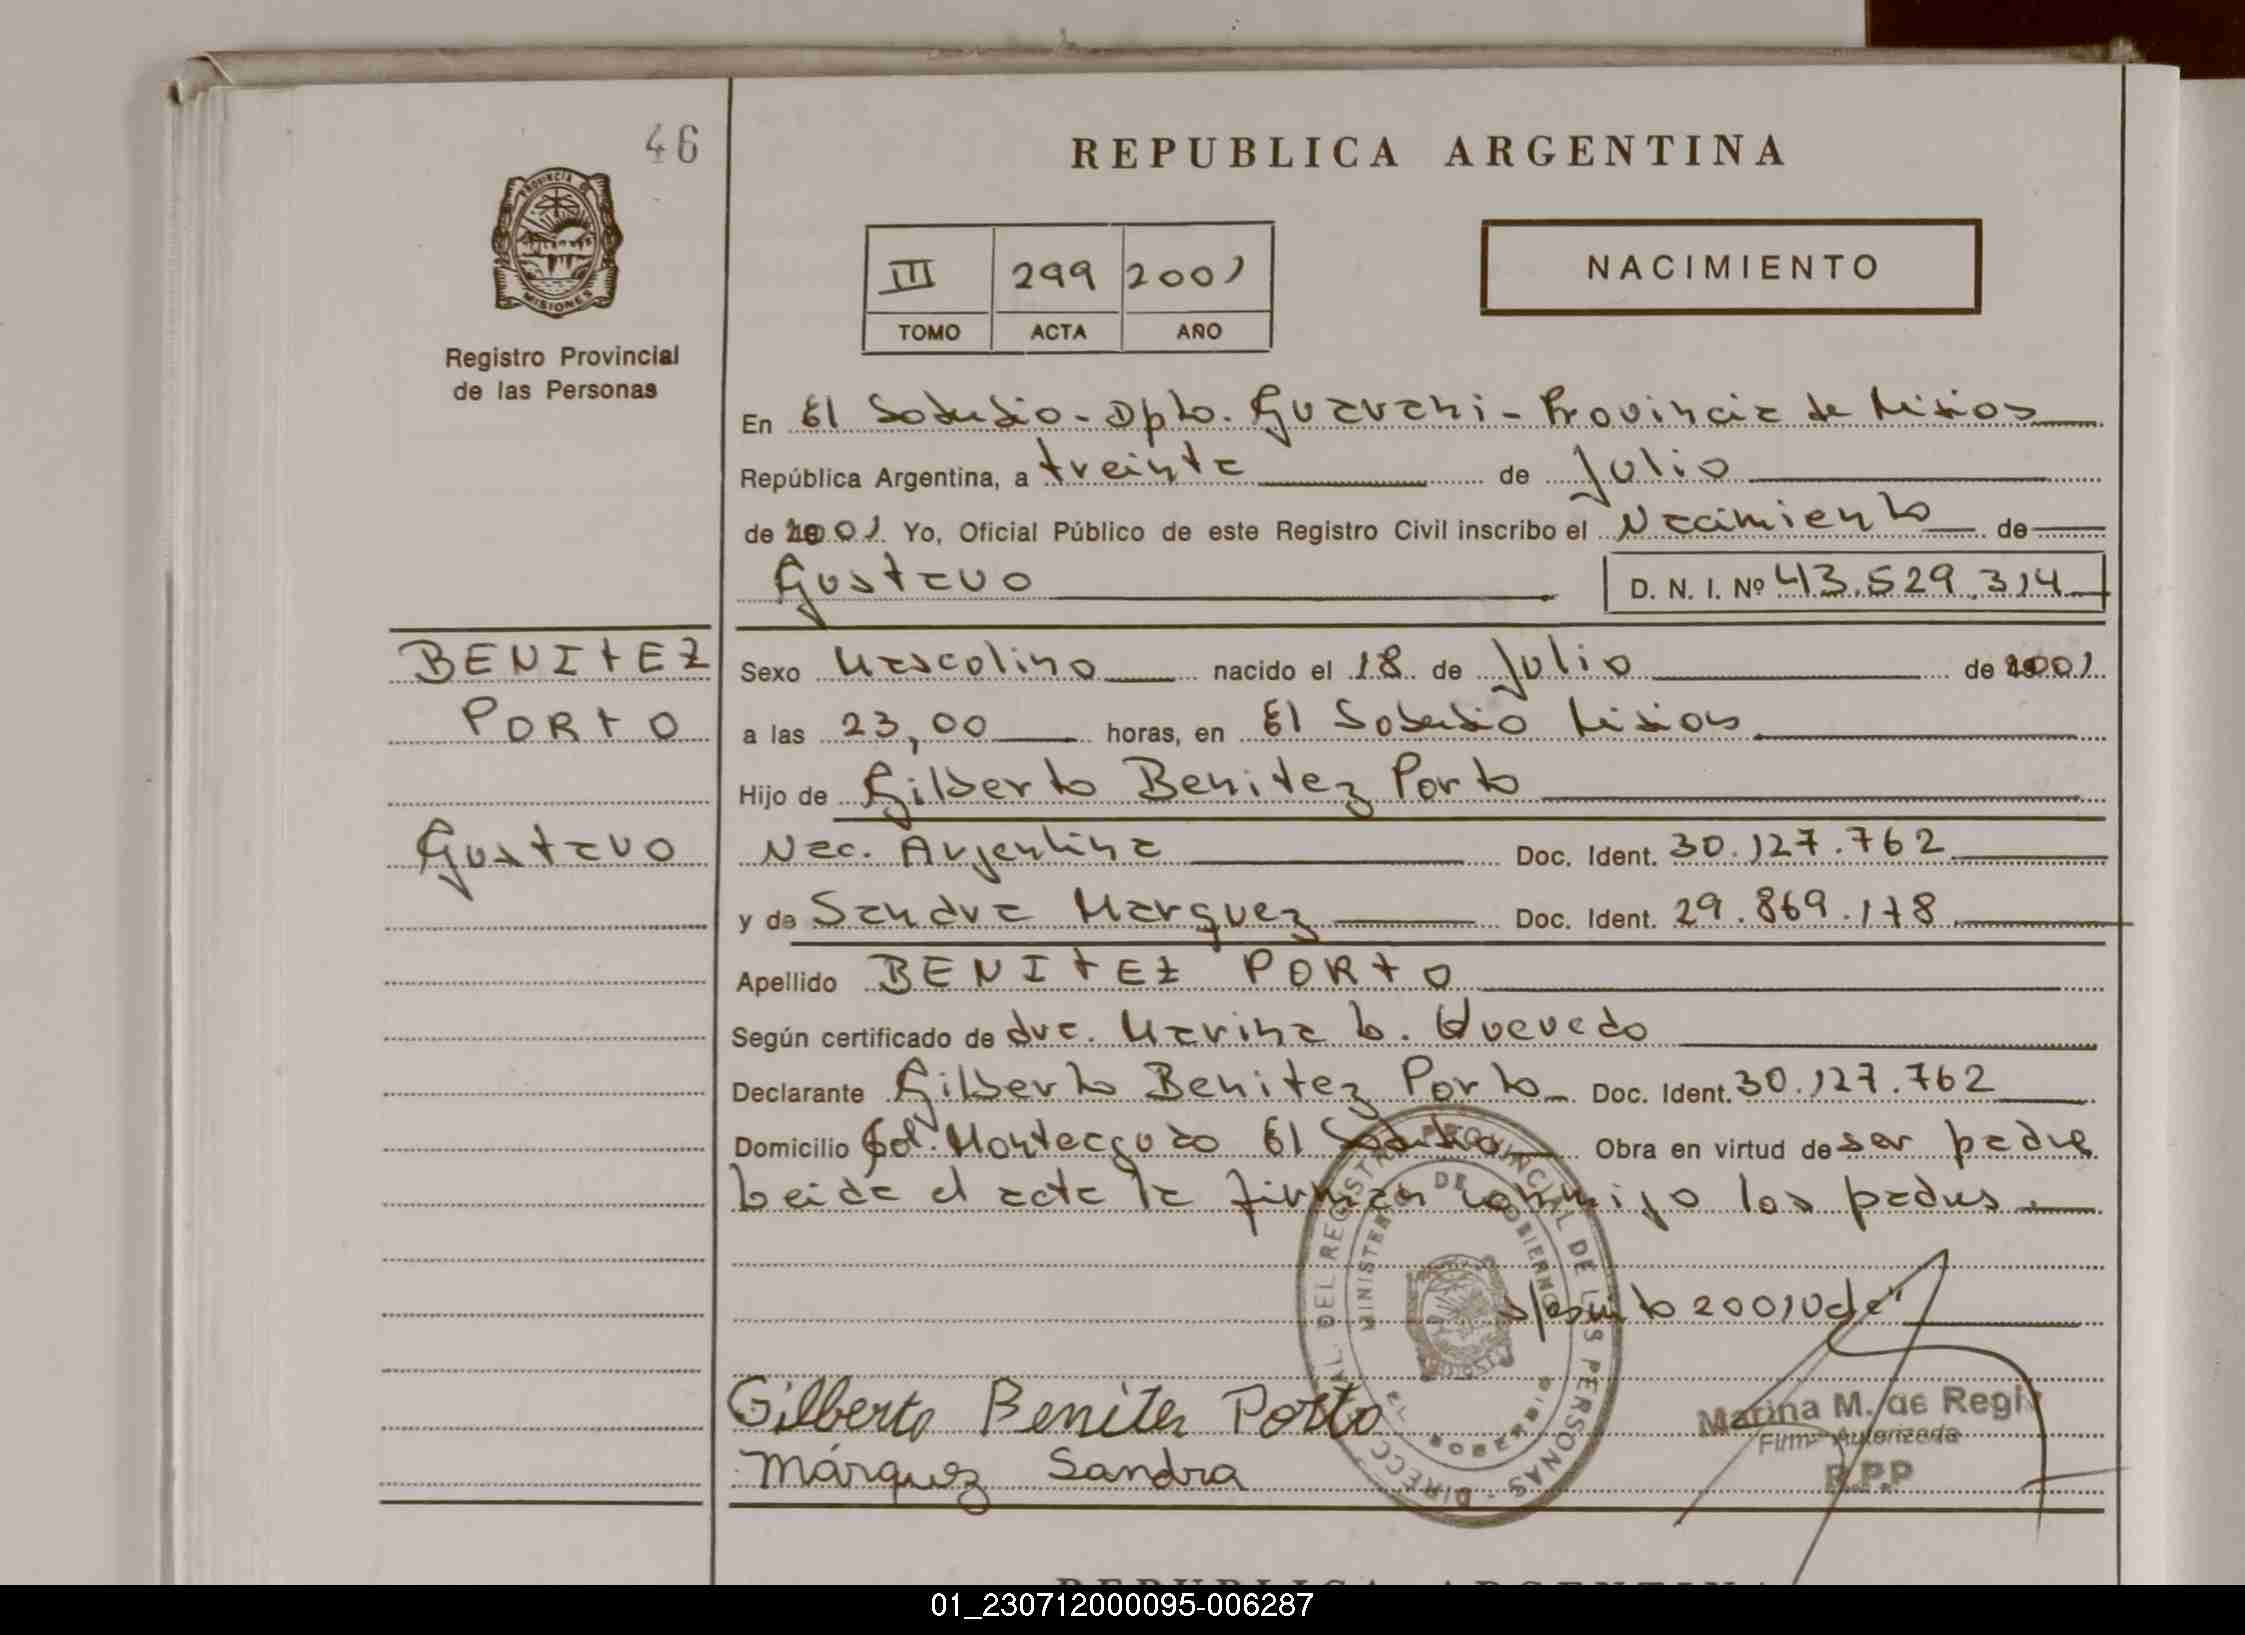 46
REPUBLICA ARGENTINA
PROVINCIA DE
MISIONES
III 299 2001
TOMO ACTA AÑO
NACIMIENTO
Registro Provincial
de las Personas
En El Soberbio - Dpto. Guarani - Provincia de Misiones
República Argentina, a treinta de Julio
de 2001 Yo, Oficial Público de este Registro Civil inscribo el Nacimiento de
Gustavo D. N. I. Nº 43.529.314
BENITEZ
PORTO
Gustavo
Sexo Masculino nacido el 18 de Julio de 2001
a las 23,00 horas, en El Soberbio Misiones
Hijo de Gilberto Benitez Porto
Nac. Argentina Doc. Ident. 30.127.762
y de Sandra Marquez Doc. Ident. 29.869.178
Apellido BENITEZ PORTO
Según certificado de dra. Marina b. Quevedo
Declarante Gilberto Benitez Porto Doc. Ident. 30.127.762
Domicilio Col. Monteagudo El Soberbio Obra en virtud de ser padre
Leida el acta la firman conmigo los padres
DIRECC. GRAL. DEL REGISTRO PROVINCIAL DE LAS PERSONAS
MINISTERIO DE GOBIERNO
EL SOBERBIO
2001
Gilberto Benitez Porto
Márquez Sandra
Marina M. de Regi
Firma Autorizada
R.P.P
REPUBLICA ARGENTINA
01_230712000095-006287